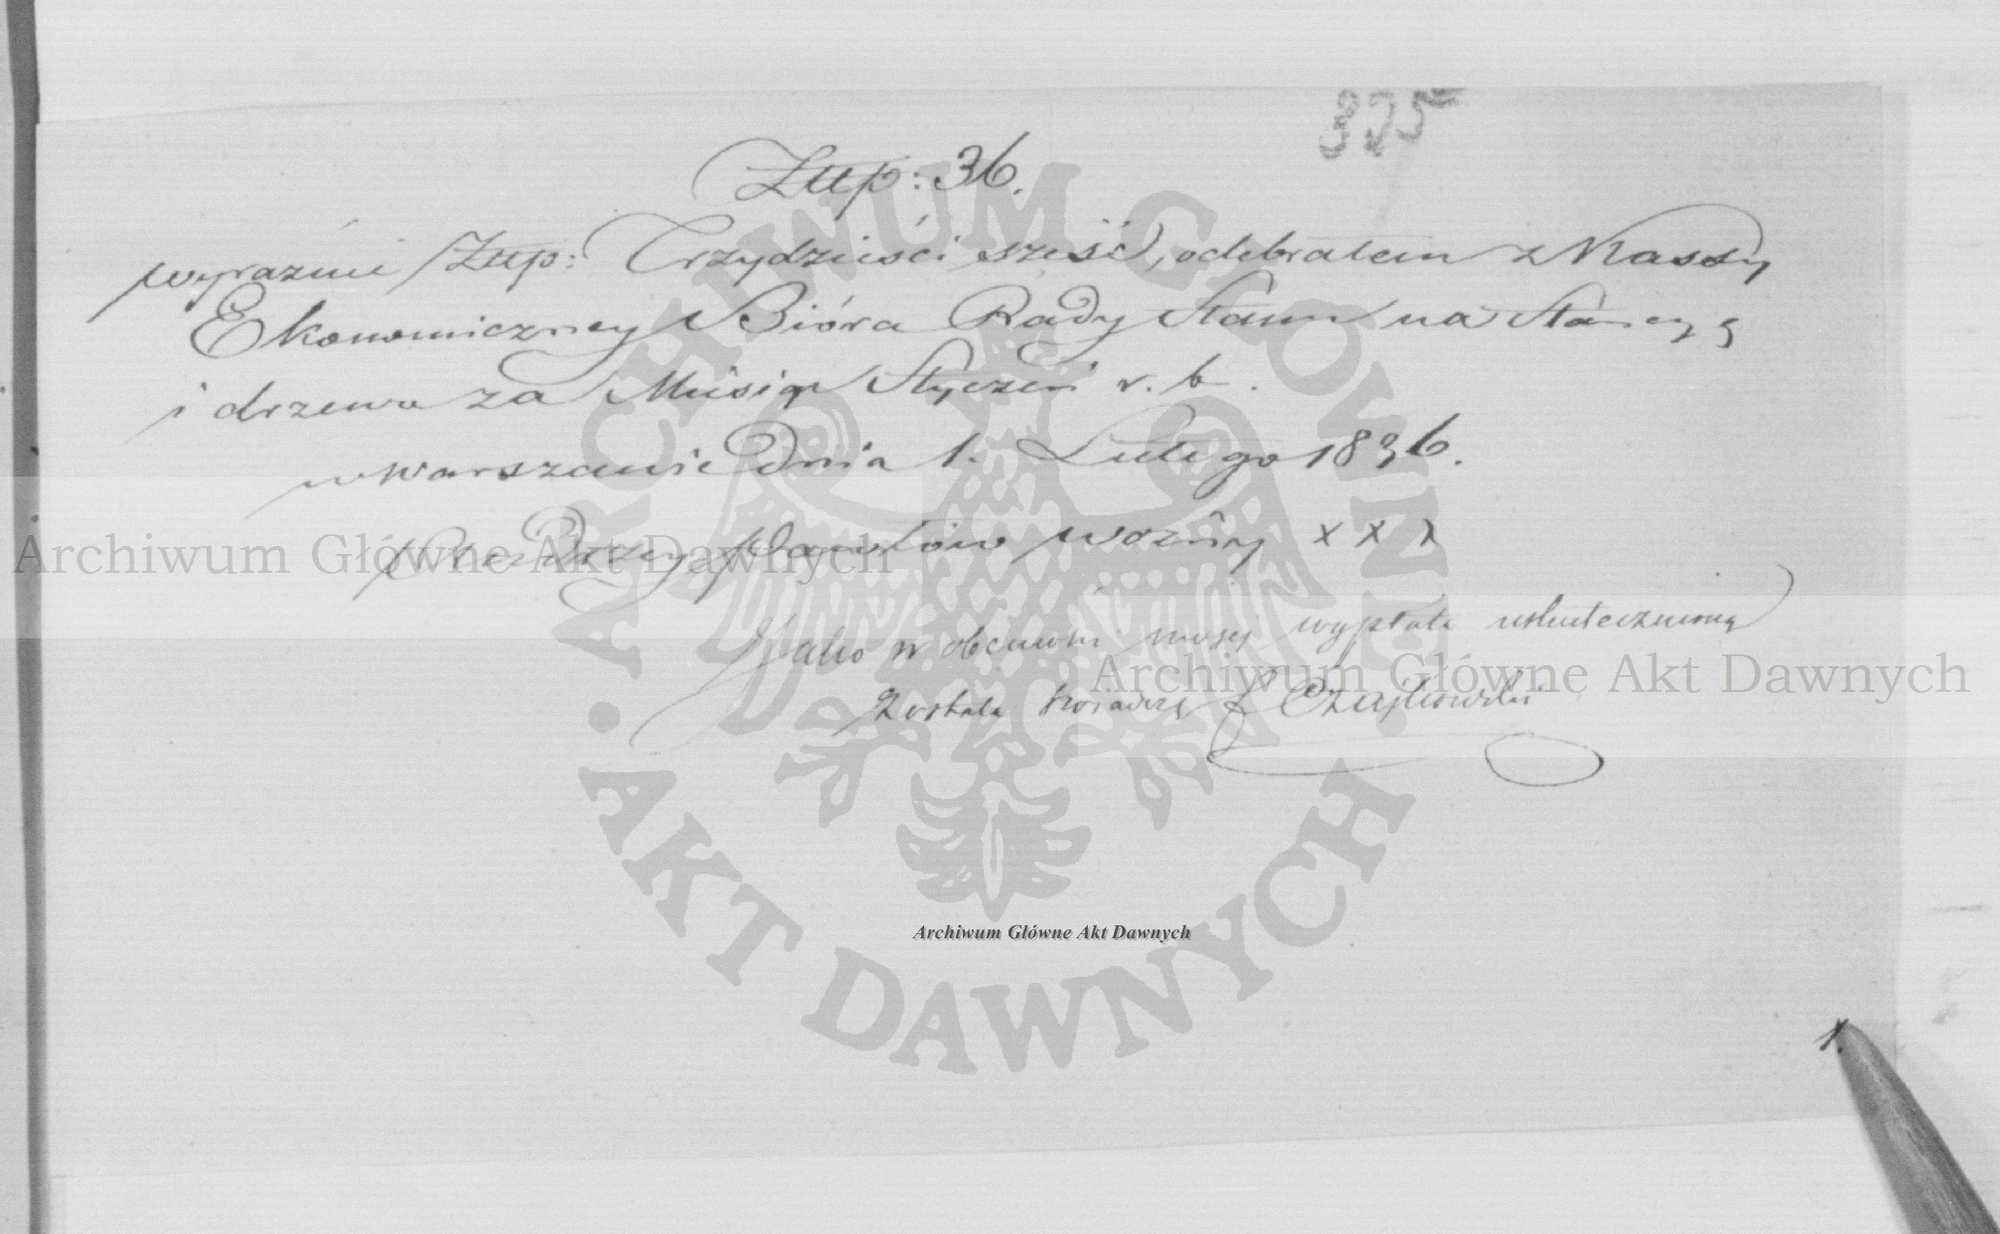 325
Złtp: 36.
wyraźnie Złtp: Trzydzieści sześć, odebrałem z Massy
Ekonomiczney Bióra Rady Stanu na Stancyą
i drzewo za Miesiąc Styczeń r. b.
w Warszawie Dnia 1. Lutego 1836.
Andrzey Pawłów woźny x x x
Jako w obecności moiey wypłata uskutecznioną
Została świadczę Czaykowski
1.
ARCHIWUM GŁÓWNE
AKT DAWNYCH
Archiwum Główne Akt Dawnych
Archiwum Główne Akt Dawnych
Archiwum Główne Akt Dawnych